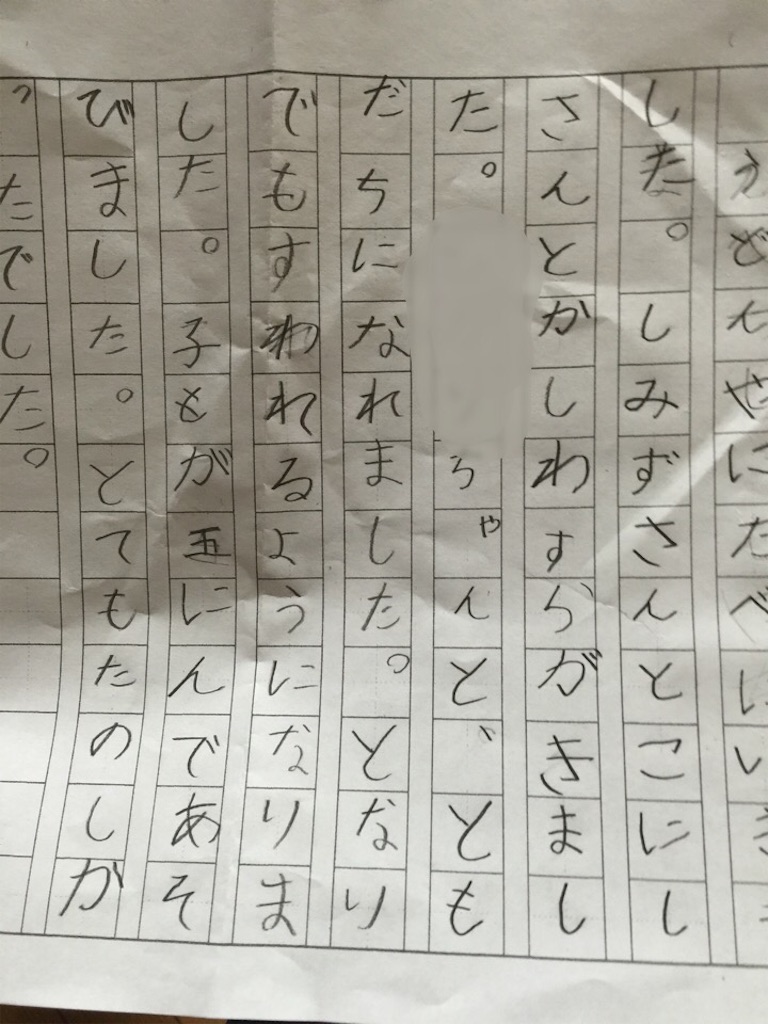 うどんやにたべにいき
した。しみずさんとこにし
さんとかしわすらがきまし
た。ちゃんと、とも
だちになれました。となり
でもすわれるようになりま
した。子もが五にんであそ
びました。とてもたのしか
ったでした。